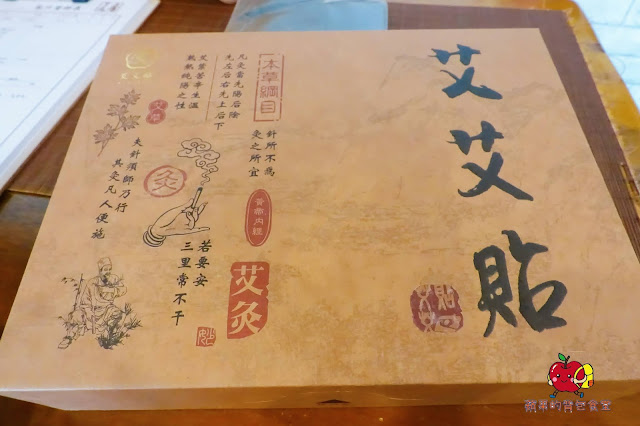 艾艾貼
本草綱目
凡灸當先陽后陰
先左后右先上后下
艾葉苦辛生溫
熟熱純陽之性
艾草
針所不爲
灸之所宜
灸
夫針須師乃行
其灸凡人便施
黃帝內經
若要安
三里常不干
艾灸
蘋果的背包食堂